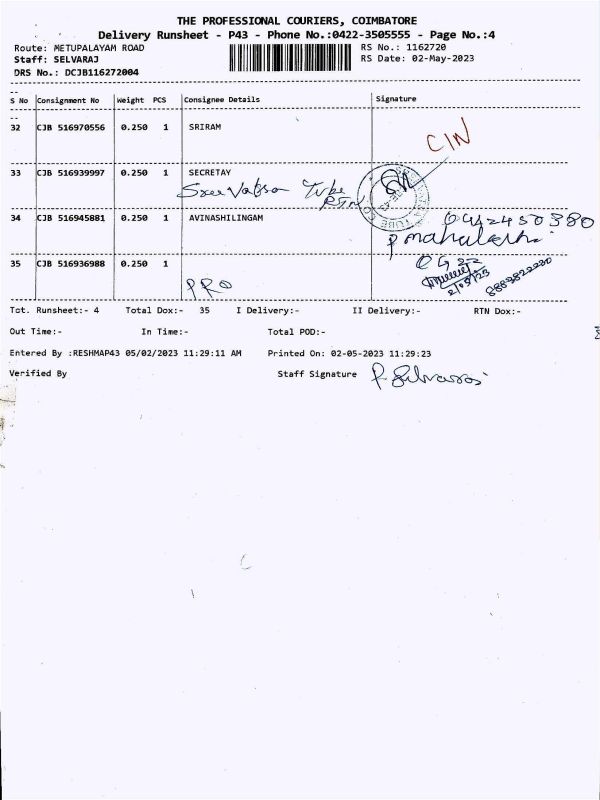 THE PROFESSIONAL COURIERS, COIMBATORE
Delivery Runsheet - P43 - Phone No.:0422-3505555 - Page No.:4
Route: METUPALAYAM ROAD RS No.: 1162720
Staff: SELVARAJ RS Date: 02-May-2023
DRS No.: DCJB116272004
S No Consignment No Weight PCS Consignee Details Signature
32 CJB 516970556 0.250 1 SRIRAM
CIN
33 CJB 516939997 0.250 1 SECRETAY
Sree Tube
34 CJB 516945881 0.250 1 AVINASHILINGAM
P mahalakshmi
35 CJB 516936988 0.250 1
PRO
2/05/23
Tot. Runsheet:- 4 Total Dox:- 35 I Delivery:- II Delivery:- RTN Dox:-
Out Time:- In Time:- Total POD:-
Entered By :RESHMAP43 05/02/2023 11:29:11 AM Printed On: 02-05-2023 11:29:23
Verified By Staff Signature P. Selvaraj